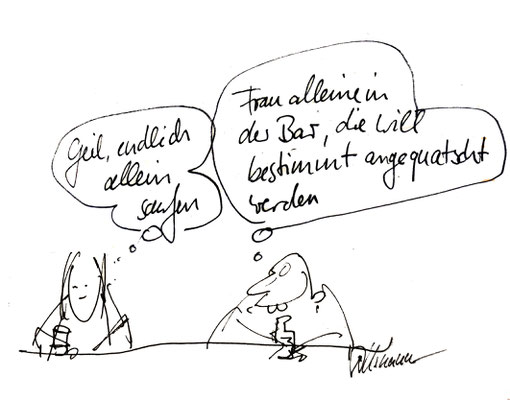 Geil, endlich
allein
saufen
Frau alleine in
der Bar, die will
bestimmt angequatscht
werden